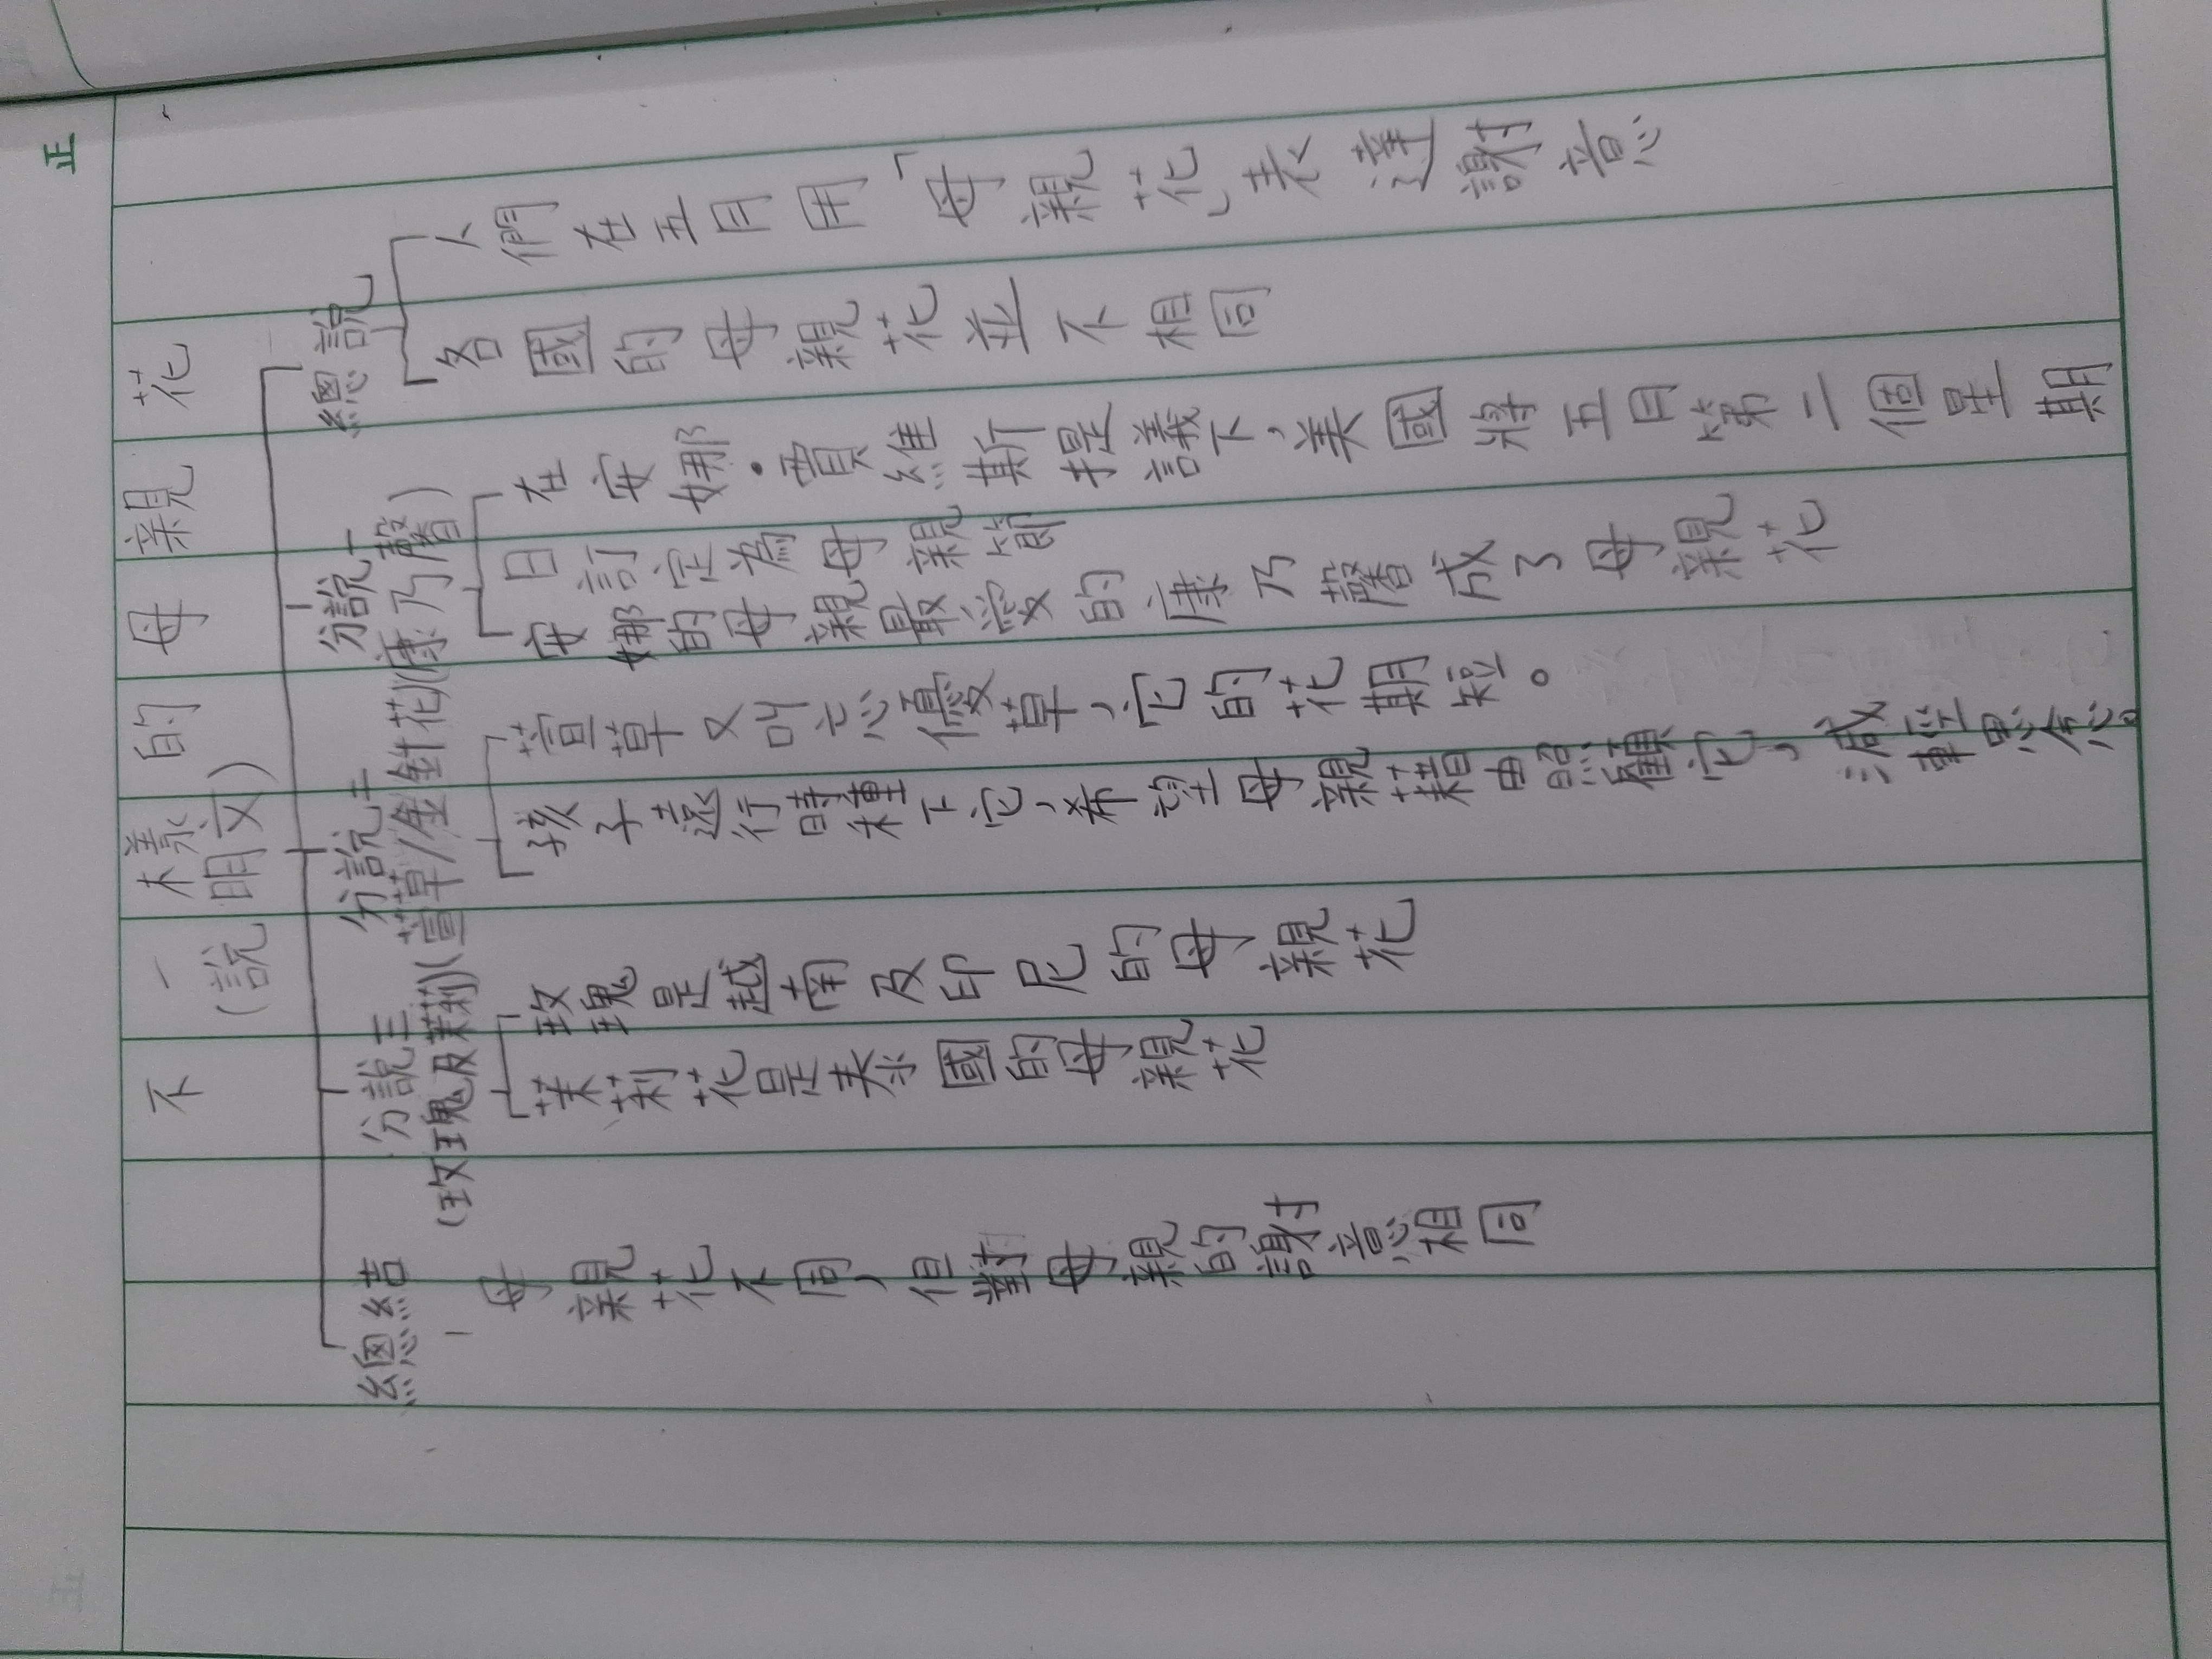 正
不一樣的母親花
(說明文)
總說
人們在五月用「母親花」表達謝意
各國的母親花並不相同
分說一
(康乃馨)
在安娜・賈維斯提議下，美國將五月第二個星期
日訂定為母親節
安娜的母親最愛的康乃馨成了母親花
分說二
(萱草/金針花)
萱草又叫忘憂草，它的花期短。
孩子遠行時種下它，希望母親藉由照顧它，減輕思念。
分說三
(玫瑰及茉莉)
玫瑰是越南及印尼的母親花
茉莉花是泰國的母親花
總結
母親花不同，但對母親的謝意相同